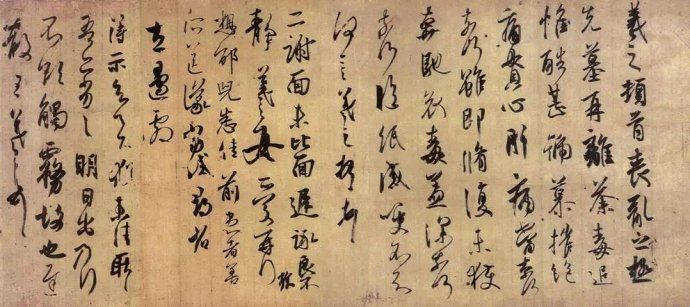 羲之頓首喪亂之極
先墓再離荼毒追
惟酷甚號慕摧絕
痛貫心肝痛當奈何
奈何雖即脩復未獲
奔馳哀毒益深奈何
奈何臨紙感哽不知
何言羲之頓首頓首
二謝面未比面遲詠良不
靜羲之女愛再拜
想邰兒悉佳前患者善
所送議當試尋省
左邊劇
得示知足下猶未佳耿耿
吾亦劣劣明日出乃行
不欲觸霧故也遲
散王羲之頓首